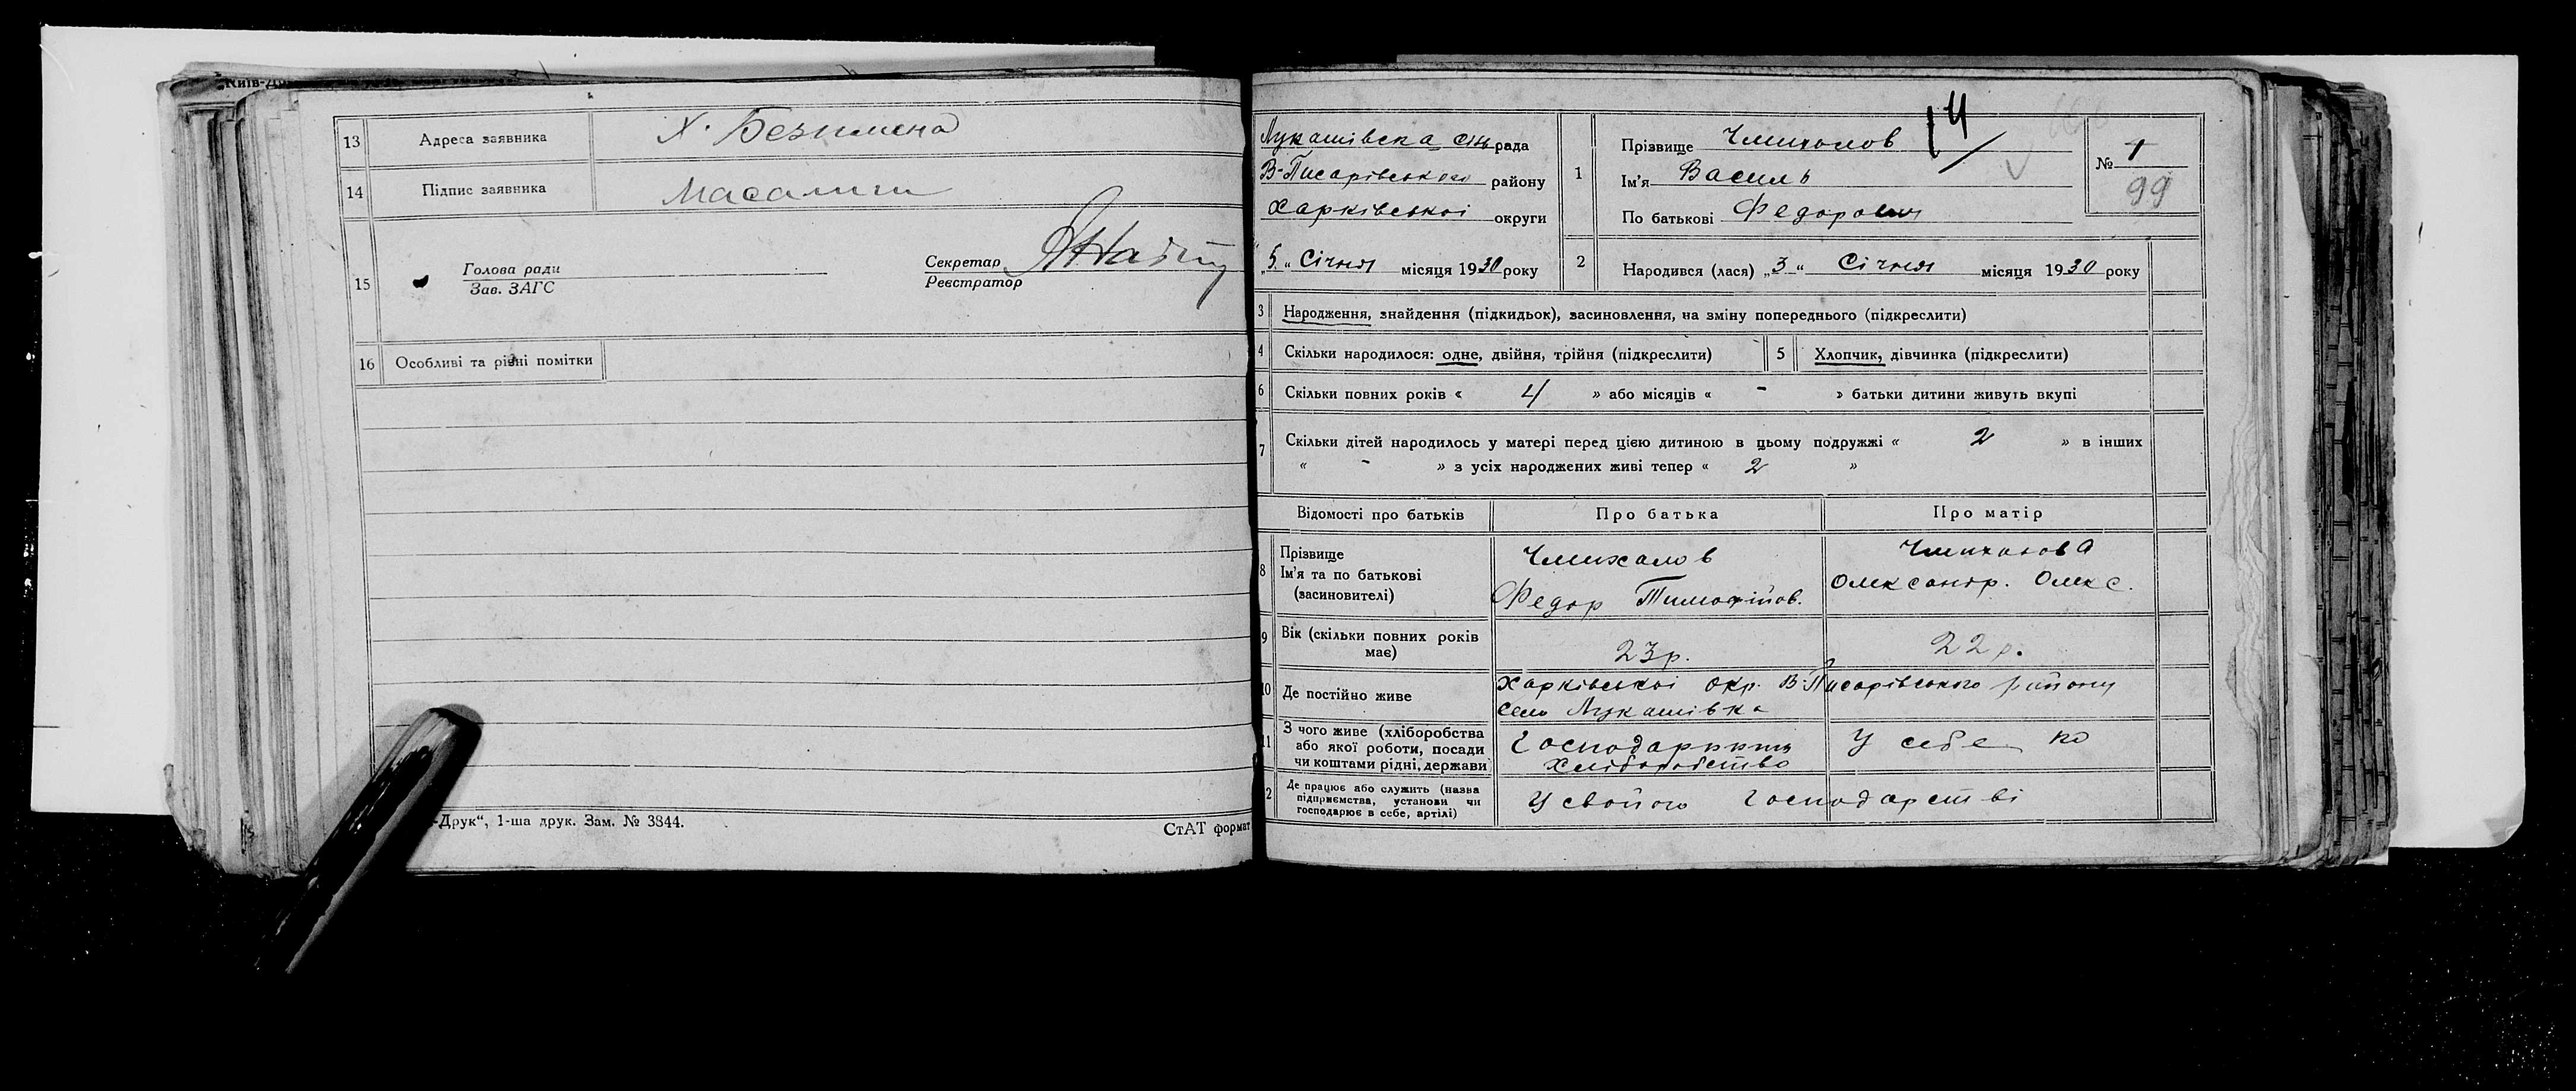 Київ-Др
13 Адреса заявника Х. Безимена
14 Підпис заявника Масалит
15 Голова ради
Зав. ЗАГС
Секретар
Реєстратор
16 Особливі та різні помітки
-Друк“, 1-ша друк. Зам. № 3844.
СтАТ формат
Лукашівська сіль рада
В-Писарівського району
Харківської округи
„5“ Січня місяця 1930 року
1 Прізвище Чмихалов
Ім'я Василь
По батькові Федорович
14
№ 1
99
2 Народився (лася) „3“ Січня місяця 1930 року
3 Народження, знайдення (підкидьок), засиновлення, на зміну попереднього (підкреслити)
4 Скільки народилося: одне, двійня, трійня (підкреслити) 5 Хлопчик, дівчинка (підкреслити)
6 Скільки повних років « 4 » або місяців « - » батьки дитини живуть вкупі
7 Скільки дітей народилось у матері перед цією дитиною в цьому подружжі « 2 » в інших
« - » з усіх народжених живі тепер « 2 »
Відомості про батьків Про батька Про матір
8 Прізвище
Ім'я та по батькові
(засиновителі)
Чмихалов
Федор Тимофійов.
Чмихалова
Олександр. Олекс.
9 Вік (скільки повних років має) 23 р. 22 р.
10 Де постійно живе Харківської окр. В-Писарівського району
село Лукашівка
11 З чого живе (хліборобства
або якої роботи, посади
чи коштами рідні, держави
хліборобство
У себе
2 Де працює або служить (назва
підприємства, установи чи
господарює в себе, артілі)
У свойого господарстві